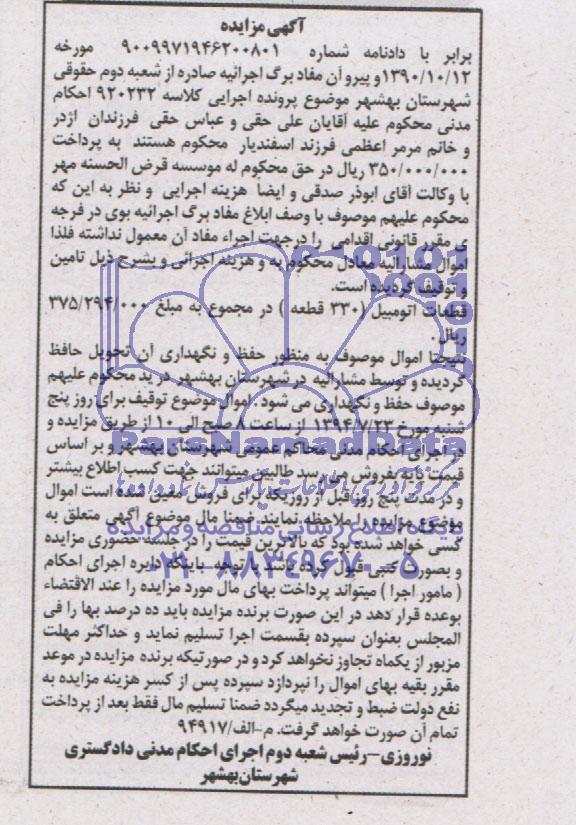 آگهی مزایده
برابر با دادنامه شماره ۹۰۰۹۹۷۱۹۴۶۲۰۰۸۰۱ مورخه
۱۳۹۰/۱۰/۱۲و پیرو آن مفاد برگ اجرائیه صادره از شعبه دوم حقوقی
شهرستان بهشهر موضوع پرونده اجرایی کلاسه ۹۲۰۲۳۲ احکام
مدنی محکوم علیه آقایان علی حقی و عباس حقی فرزندان اژدر
و خانم مرمر اعظمی فرزند اسفندیار محکوم هستند به پرداخت
۳۵۰/۰۰۰/۰۰۰ ریال در حق محکوم له موسسه قرض الحسنه مهر
با وکالت آقای ابوذر صدقی و ایضاً هزینه اجرایی و نظر به این که
محکوم علیهم موصوف با وصف ابلاغ مفاد برگ اجرائیه بوی در فرجه
ی مقرر قانونی اقدامی را درجهت اجراء مفاد آن معمول نداشته فلذا
اموال مشارالیه معادل محکوم به و هزینه اجرائی و بشرح ذیل تامین
و توقیف گردیده است.
قطعات اتومبیل (۳۳۰ قطعه ) در مجموع به مبلغ ۳۷۵/۲۹۴/۰۰۰
ریال.
نتیجتا اموال موصوف به منظور حفظ و نگهداری آن تحویل حافظ
گردیده و توسط مشارالیه در شهرستان بهشهر در ید محکوم علیهم
موصوف حفظ و نگهداری می شود. اموال موضوع توقیف برای روز پنج
شنبه مورخ ۱۳۹۴/۷/۲۳ از ساعت ۸ صبح الی ۱۰ از طریق مزایده و
در اجرای احکام مدنی محاکم عمومی شهرستان بهشهر و بر اساس
قیمت پایه بفروش می رسد طالبین میتوانند جهت کسب اطلاع بیشتر
و در مدت پنج روز قبل از روزیکه برای فروش معین شده است اموال
موضوع مزایده را ملاحظه نمایند ضمنا مال موضوع آگهی متعلق به
کسی خواهد شد که بالاترین قیمت را در جلسه حضوری مزایده
و بصورت کتبی قبول کرده باشد با توجه باینکه دایره اجرای احکام
( مامور اجرا ) میتواند پرداخت بهای مال مورد مزایده را عند الاقتضاء
بوعده قرار دهد در این صورت برنده مزایده باید ده درصد بها را فی
المجلس بعنوان سپرده بقسمت اجرا تسلیم نماید و حداکثر مهلت
مزبور از یکماه تجاوز نخواهد کرد و در صورتیکه برنده مزایده در موعد
مقرر بقیه بهای اموال را نپردازد سپرده پس از کسر هزینه مزایده به
نفع دولت ضبط و تجدید میگردد ضمنا تسلیم مال فقط بعد از پرداخت
تمام آن صورت خواهد گرفت. م-الف/۹۴۹۱۷
نوروزی-رئیس شعبه دوم اجرای احکام مدنی دادگستری
شهرستان بهشهر
ParsNamadData
پایگاه اطلاع رسانی مناقصه و مزایده
۰۲۱-۸۸۳۴۹۶۷۰-۵